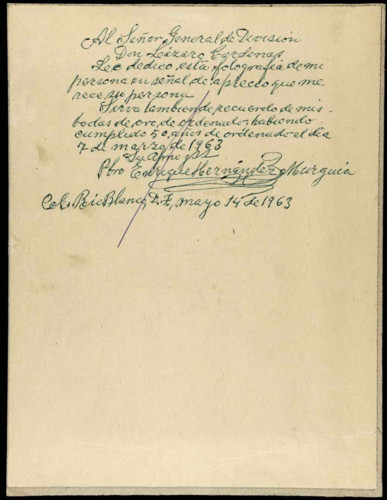 Al Señor General de División
Don Lázaro Cárdenas
Le dedico, esta fotografía de mi
persona en señal, de aprecio que me
rece su persona
Sirva también de recuerdo de mis
bodas de oro, de ordenado, habiendo
cumplido 50, años de ordenado el día
7 de marzo de 1963
Su afmo
Pbro Enrique Hernández Murguía
Col. Río Blanco, D.F., mayo 14 de 1963